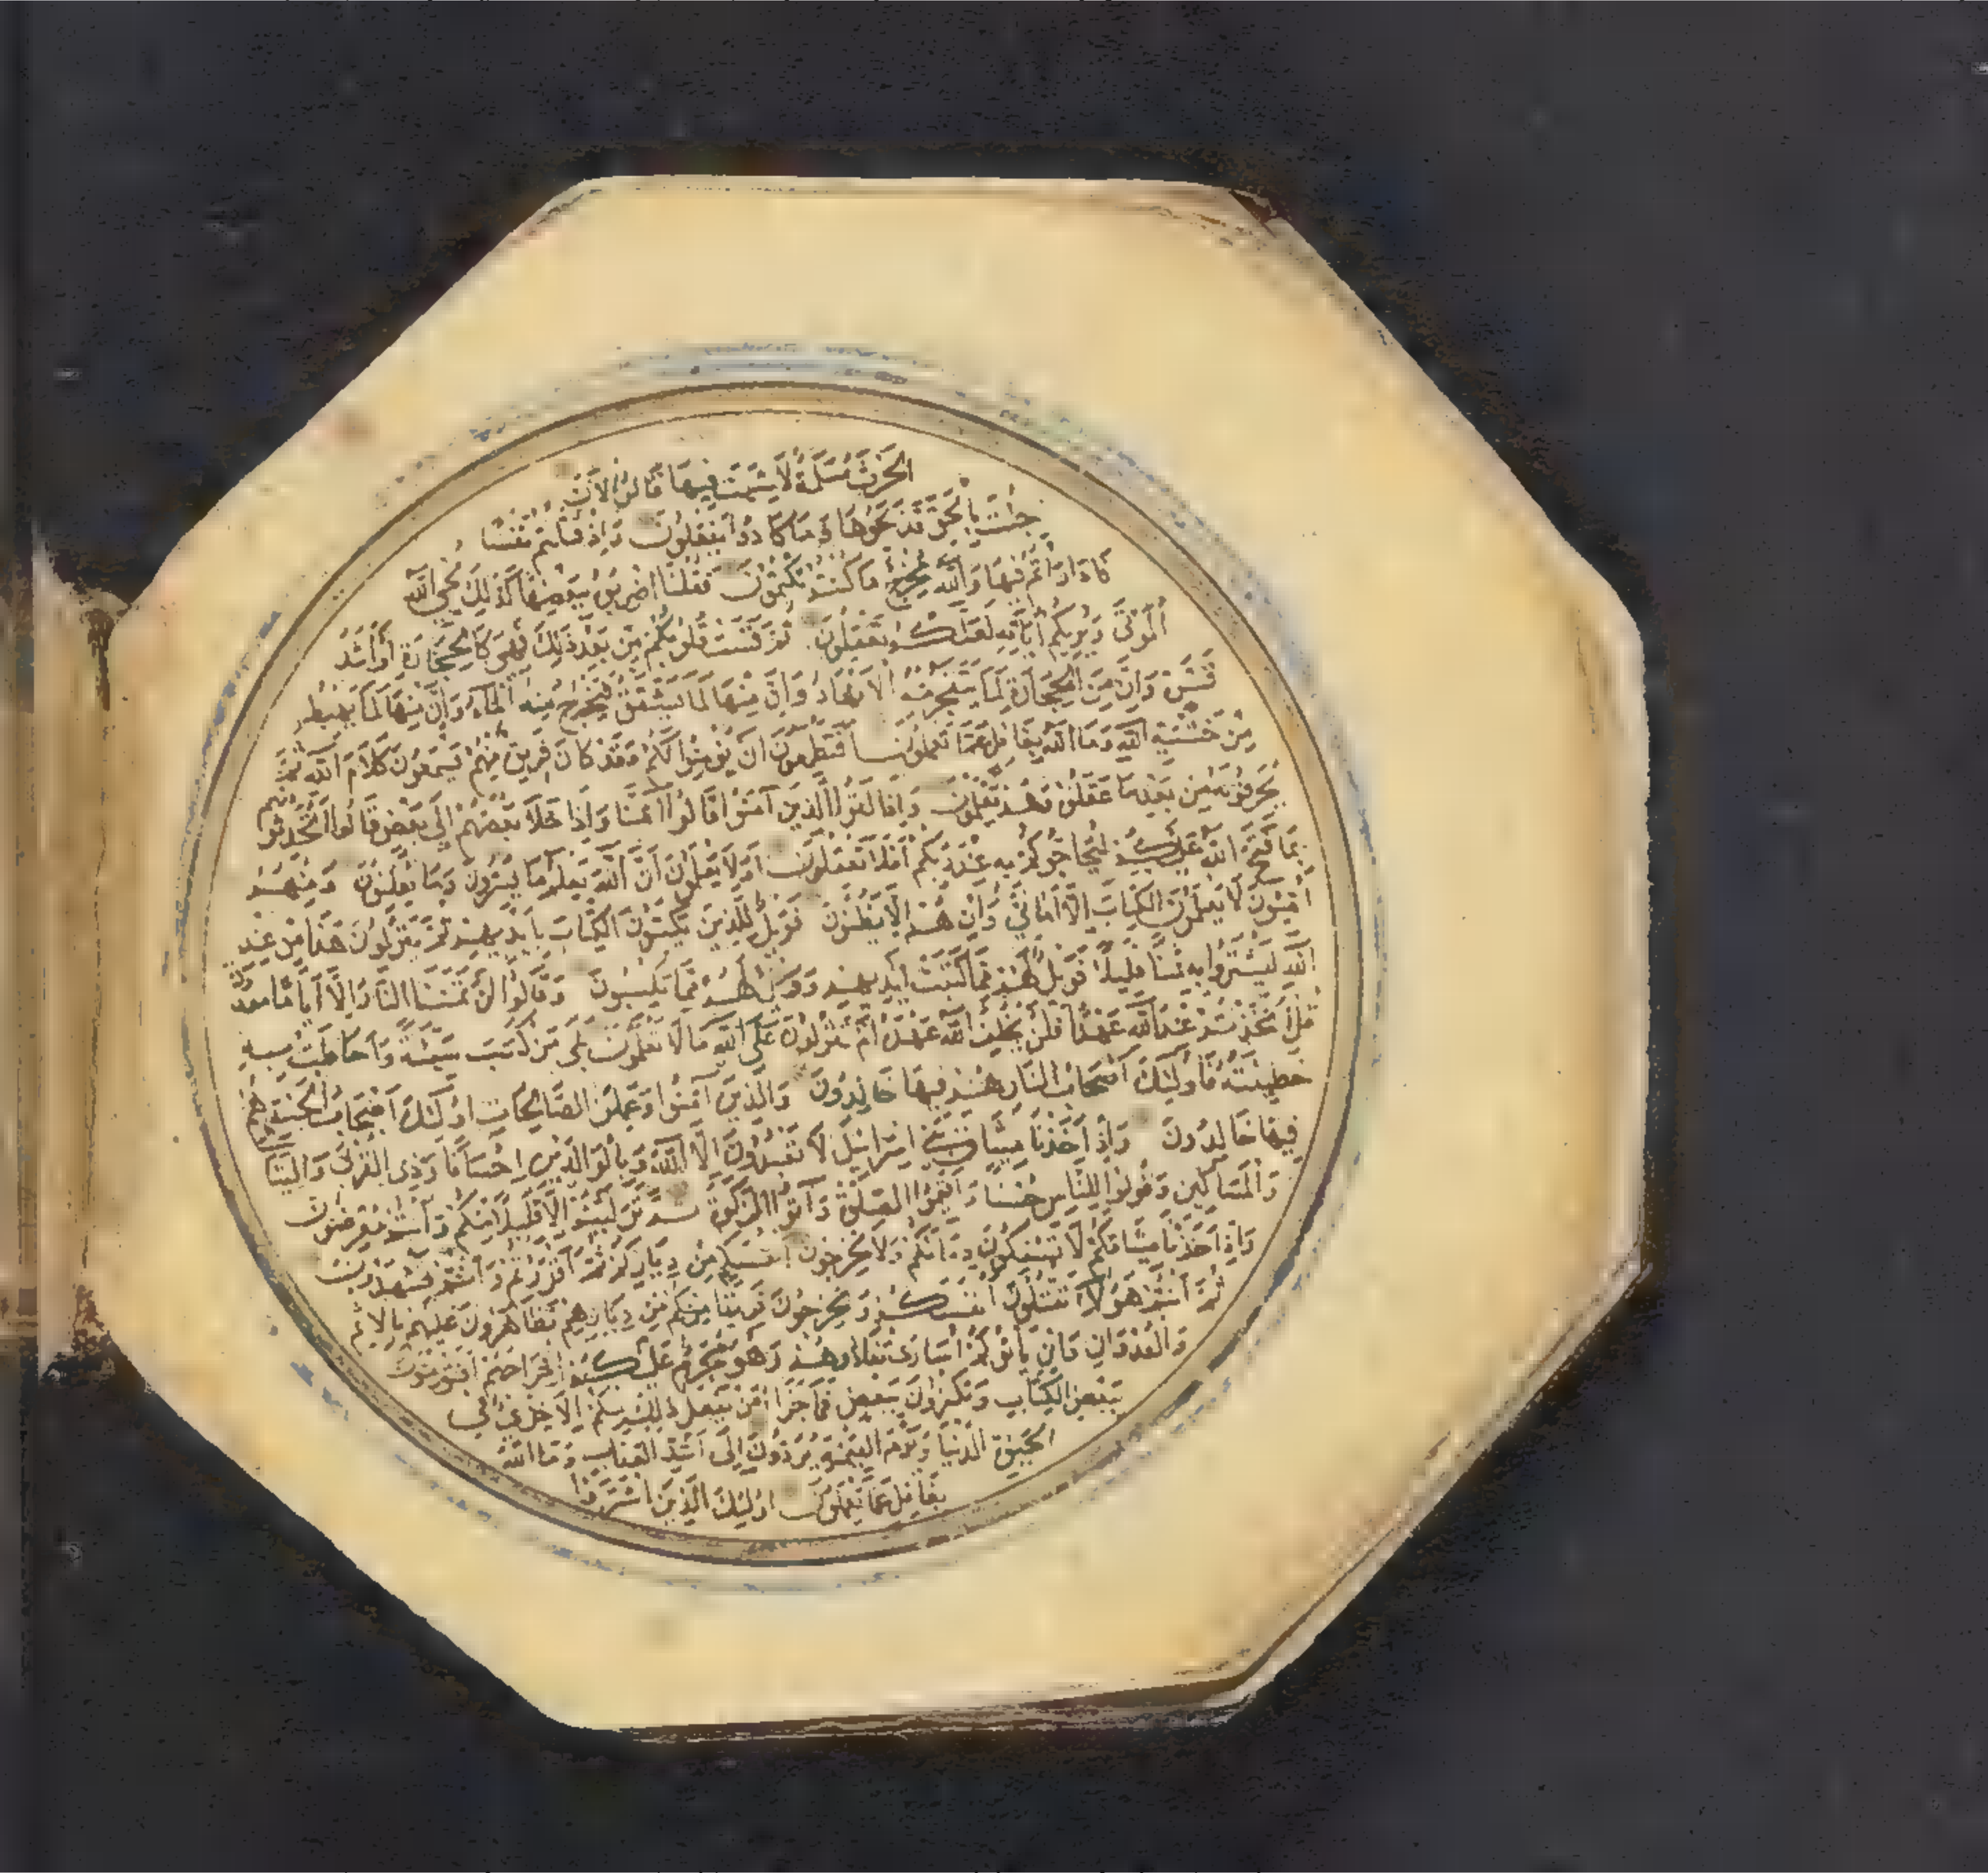 الحَرْثَ مُسَلَّمَةٌ لَا شِيَةَ فِيهَا قَالُوا الْآنَ
جِئْتَ بِالْحَقِّ فَذَبَحُوهَا وَمَا كَادُوا يَفْعَلُونَ وَإِذْ قَتَلْتُمْ نَفْسًا
فَادَّارَأْتُمْ فِيهَا وَاللَّهُ مُخْرِجٌ مَا كُنْتُمْ تَكْتُمُونَ فَقُلْنَا اضْرِبُوهُ بِبَعْضِهَا كَذَلِكَ يُحْيِي اللَّهُ
الْمَوْتَى وَيُرِيكُمْ آيَاتِهِ لَعَلَّكُمْ تَعْقِلُونَ ثُمَّ قَسَتْ قُلُوبُكُمْ مِنْ بَعْدِ ذَلِكَ فَهِيَ كَالْحِجَارَةِ أَوْ أَشَدُّ
قَسْوَةً وَإِنَّ مِنَ الْحِجَارَةِ لَمَا يَتَفَجَّرُ مِنْهُ الْأَنْهَارُ وَإِنَّ مِنْهَا لَمَا يَشَّقَّقُ فَيَخْرُجُ مِنْهُ الْمَاءُ وَإِنَّ مِنْهَا لَمَا يَهْبِطُ
مِنْ خَشْيَةِ اللَّهِ وَمَا اللَّهُ بِغَافِلٍ عَمَّا تَعْمَلُونَ أَفَتَطْمَعُونَ أَنْ يُؤْمِنُوا لَكُمْ وَقَدْ كَانَ فَرِيقٌ مِنْهُمْ يَسْمَعُونَ كَلَامَ اللَّهِ ثُمَّ
يُحَرِّفُونَهُ مِنْ بَعْدِ مَا عَقَلُوهُ وَهُمْ يَعْلَمُونَ وَإِذَا لَقُوا الَّذِينَ آمَنُوا قَالُوا آمَنَّا وَإِذَا خَلَا بَعْضُهُمْ إِلَى بَعْضٍ قَالُوا أَتُحَدِّثُونَهُمْ
بِمَا فَتَحَ اللَّهُ عَلَيْكُمْ لِيُحَاجُّوكُمْ بِهِ عِنْدَ رَبِّكُمْ أَفَلَا تَعْقِلُونَ أَوَلَا يَعْلَمُونَ أَنَّ اللَّهَ يَعْلَمُ مَا يُسِرُّونَ وَمَا يُعْلِنُونَ وَمِنْهُمْ
أُمِّيُّونَ لَا يَعْلَمُونَ الْكِتَابَ إِلَّا أَمَانِيَّ وَإِنْ هُمْ إِلَّا يَظُنُّونَ فَوَيْلٌ لِلَّذِينَ يَكْتُبُونَ الْكِتَابَ بِأَيْدِيهِمْ ثُمَّ يَقُولُونَ هَذَا مِنْ عِنْدِ
اللَّهِ لِيَشْتَرُوا بِهِ ثَمَنًا قَلِيلًا فَوَيْلٌ لَهُمْ مِمَّا كَتَبَتْ أَيْدِيهِمْ وَوَيْلٌ لَهُمْ مِمَّا يَكْسِبُونَ وَقَالُوا لَنْ تَمَسَّنَا النَّارُ إِلَّا أَيَّامًا مَعْدُودَةً
قُلْ أَتَّخَذْتُمْ عِنْدَ اللَّهِ عَهْدًا فَلَنْ يُخْلِفَ اللَّهُ عَهْدَهُ أَمْ تَقُولُونَ عَلَى اللَّهِ مَا لَا تَعْلَمُونَ بَلَى مَنْ كَسَبَ سَيِّئَةً وَأَحَاطَتْ بِهِ
خَطِيئَتُهُ فَأُولَئِكَ أَصْحَابُ النَّارِ هُمْ فِيهَا خَالِدُونَ وَالَّذِينَ آمَنُوا وَعَمِلُوا الصَّالِحَاتِ أُولَئِكَ أَصْحَابُ الْجَنَّةِ هُمْ
فِيهَا خَالِدُونَ وَإِذْ أَخَذْنَا مِيثَاقَ بَنِي إِسْرَائِيلَ لَا تَعْبُدُونَ إِلَّا اللَّهَ وَبِالْوَالِدَيْنِ إِحْسَانًا وَذِي الْقُرْبَى وَالْيَتَامَى
وَالْمَسَاكِينِ وَقُولُوا لِلنَّاسِ حُسْنًا وَأَقِيمُوا الصَّلَوةَ وَآتُوا الزَّكَوةَ ثُمَّ تَوَلَّيْتُمْ إِلَّا قَلِيلًا مِنْكُمْ وَأَنْتُمْ مُعْرِضُونَ
وَإِذْ أَخَذْنَا مِيثَاقَكُمْ لَا تَسْفِكُونَ دِمَاءَكُمْ وَلَا تُخْرِجُونَ أَنْفُسَكُمْ مِنْ دِيَارِكُمْ ثُمَّ أَقْرَرْتُمْ وَأَنْتُمْ تَشْهَدُونَ
ثُمَّ أَنْتُمْ هَؤُلَاءِ تَقْتُلُونَ أَنْفُسَكُمْ وَتُخْرِجُونَ فَرِيقًا مِنْكُمْ مِنْ دِيَارِهِمْ تَظَاهَرُونَ عَلَيْهِمْ بِالْإِثْمِ
وَالْعُدْوَانِ وَإِنْ يَأْتُوكُمْ أُسَارَى تُفَادُوهُمْ وَهُوَ مُحَرَّمٌ عَلَيْكُمْ إِخْرَاجُهُمْ أَفَتُؤْمِنُونَ
بِبَعْضِ الْكِتَابِ وَتَكْفُرُونَ بِبَعْضٍ فَمَا جَزَاءُ مَنْ يَفْعَلُ ذَلِكَ مِنْكُمْ إِلَّا خِزْيٌ فِي
الْحَيَوةِ الدُّنْيَا وَيَوْمَ الْقِيَمَةِ يُرَدُّونَ إِلَى أَشَدِّ الْعَذَابِ وَمَا اللَّهُ
بِغَافِلٍ عَمَّا تَعْمَلُونَ أُولَئِكَ الَّذِينَ اشْتَرَوُا